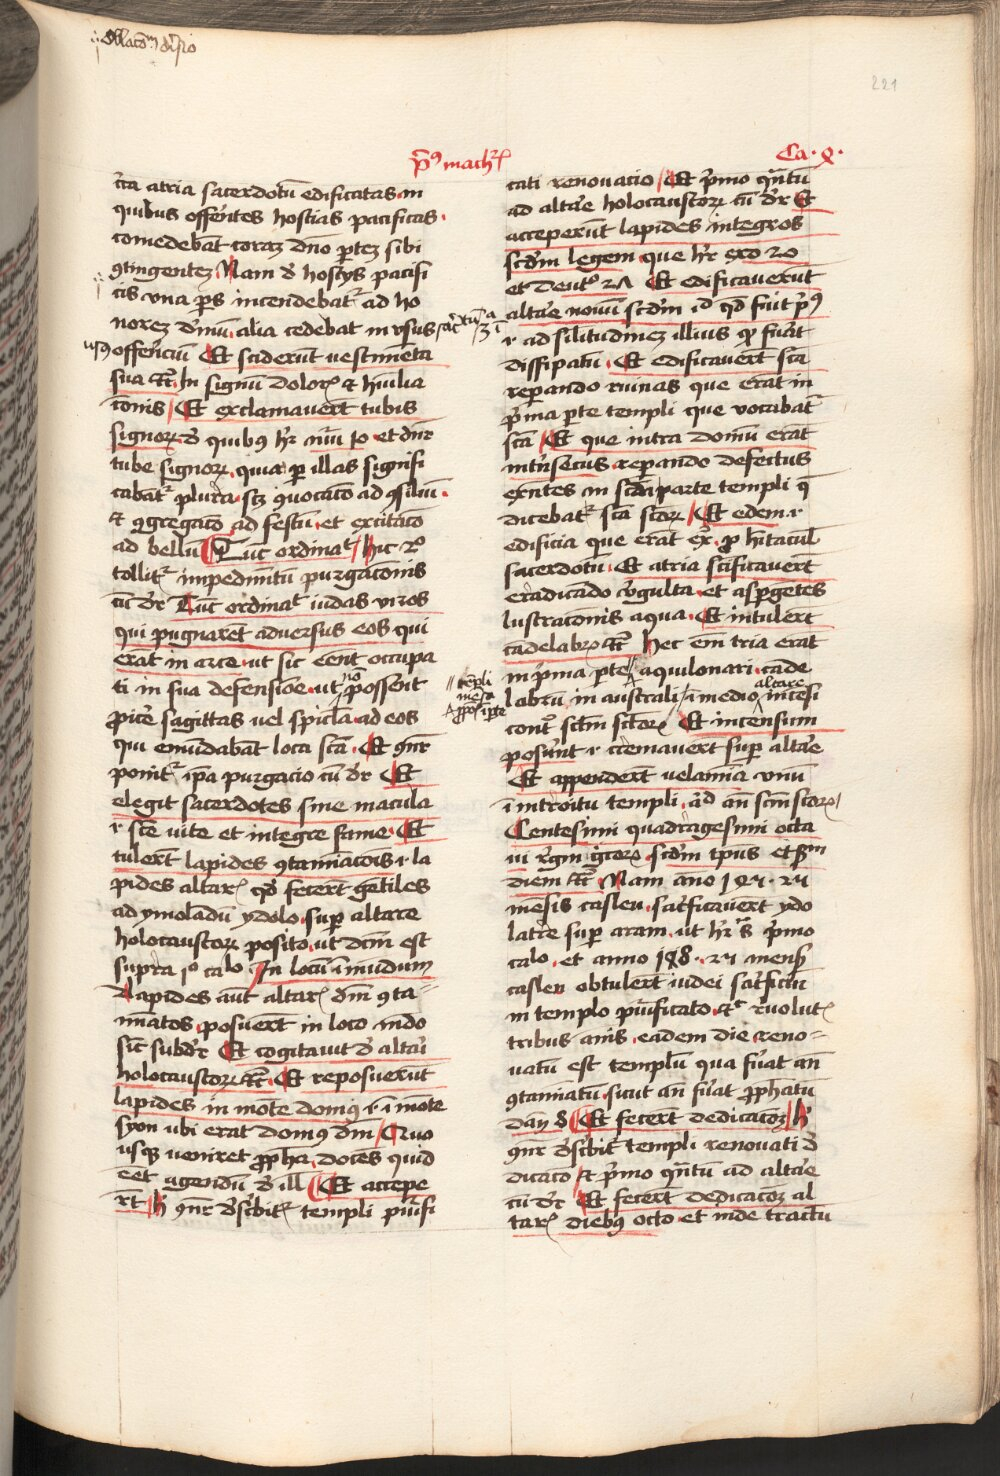 221
p̄⁹ mach̄
Ca· 9·
c̄ca atria sacerdotū edificatas in
quibus offerētes hostias pacificas·
comedebāt coraz dn̄o p̄tez sibi
ꝯtingentez Nam d̄ hostys pacifi
cis vna ps incendebat̄ ad ho
norez diuinū· alia cedebat in vsus
offerēciū Et sciderunt vestimēta
sua ⁊c̄ In signū dolor⁊ et humilia
cōnis Et exclamauerūt tubis
signoꝝ d̄ quibꝯ hr̄ nūi 10 et dn̄r
tube signoꝝ· quia p illas signifi
cabāt̄ plura· sc̄z ꝯuocacō ad ꝯsiliū·
et ꝯgregacō ad festū· et excitacō
ad bellū Tūc ordinat̄ Hic 2º
tollit̄ impedimētū purgacōnis
cū dr̄ Tūc ordinat̄ iudas viros
qui pugnarēt aduersus eos qui
erāt in arce· ut sic eēnt occupa
ti in sua defensiōe· ut nō possent
ꝓicē sagittas uel spicla· ad eos
qui emūdabāt loca scā· Et ꝯn̄r
ponit̄ ip̄a purgacio cū dr̄ Et
elegit sacerdotes sine macula
.i. scē uite et integre fame· Et
tulerūt lapides ꝯtaminacōis .i. la
pides altar⁊ qd̄ fecerūt gētiles
ad ymoladū ydolo· sup altare
holocaustoꝝ posito· ut dcm̄ est
supra 1º ca̅lo In locū īmundum
Lapides aut̄ altar⁊ dn̄i ꝯta-
minatos· posuerūt in loco mūdo
sic̄ subdr̄ Et cogitauit d̄ altari
holocaustoꝝ ⁊c̄· Et reposuerūt
lapides in mōte domꝯ .i. ī mōte
syon ubi erat domꝯ dn̄i Quo
usqꝫ veniret ꝓpha· docēs quid
eēt agendū d̄ ill̄ Et accepe
rūt h̄ ꝯn̄r dēscbit̄ templi pūifi
cati renouacio Et p̄mo qn̄tū
ad altare holocaustoꝝ cū dr̄ Et
acceperūt lapides integros
scd̄m legem que hr̄ exo 20
et deutº 27 Et edificauerūt
altare nouū scd̄m id qd̄ fuit p̄ꝯ
.i. ad silitudinez illius qd̄ fūat
dissipatū· Et edificauerūt scā
reparando ruinas que erāt in
p̄ma pte templi que vocabat̄
scā Et que intra domū erāt
intrīsecus reparando defectus
exn̄tes in scd̄a parte templi q̄
dicebat̄ scā scōꝝ Et edem .i.
edificia que erāt ex̄ ꝓ hītacul̄
sacerdotū· Et atria scīficauerūt
eradicādo vīgulta· et aspgentes
lustracōnis aqua· Et intulerūt
cādelabrꝫ ⁊c̄ Hec em̄ tria erāt
in p̄ma pte aquilonari· cāde
labrū in australi ī medio altare incēsi
cont̄ scm̄ scōꝝ Et incensum
posuūt .i. cremauerūt sup altare
Et appenderūt velamīa vnū
ī introitu templi· ad an̄ scm̄ scōꝝ
Centesimi quadragesimi octa
ui rēgm̄ grecoꝝ scd̄m tpus et scd̄m
diem ⁊c̄ Nam ano 145· 25
mēsis casleu· sacrificauerūt ydo
latre sup aram ut hr̄ s̄ p̄mo
ca̅lo· et anno 148· 25 mensꝭ
casleu obtulerūt iudei sacrificiū
in templo pūificato· et reuolut⁊
tribus anis· eadem die reno-
uatū est templū qua fūat an̄
ꝯtaminatū· sicut an̄ fūat ꝓphatū
dany 8 Et fecerūt dedicacōz h̄
ꝯn̄r dēscbit̄ templi renouati de
dicacō Et p̄mo qn̄tū ad altare
cū dr̄ Et fecerūt dedicacōz al
tar⁊ diebꝯ octo et inde tractū